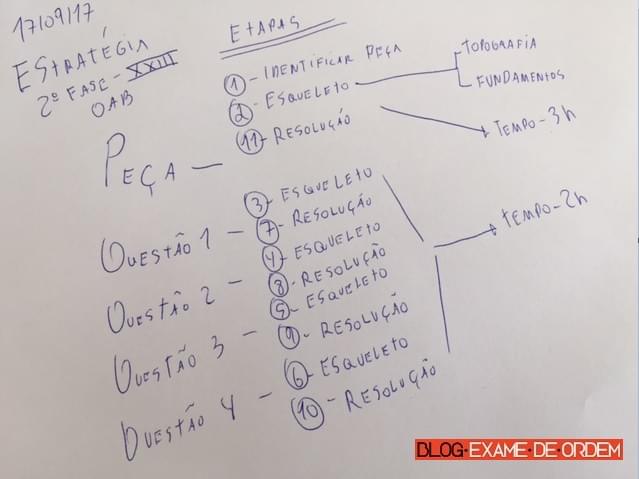 17/09/17
ESTRATÉGIA
2º FASE - XXIII
OAB
ETAPAS
PEÇA —
① - IDENTIFICAR PEÇA
② - ESQUELETO
TOPOGRAFIA
FUNDAMENTOS
⑪ - RESOLUÇÃO
TEMPO - 3h
QUESTÃO 1 -
③ - ESQUELETO
⑦ - RESOLUÇÃO
QUESTÃO 2 -
④ - ESQUELETO
⑧ - RESOLUÇÃO
QUESTÃO 3 -
⑤ - ESQUELETO
⑨ - RESOLUÇÃO
QUESTÃO 4 -
⑥ - ESQUELETO
⑩ - RESOLUÇÃO
TEMPO - 2h
BLOG·EXAME·DE·ORDEM